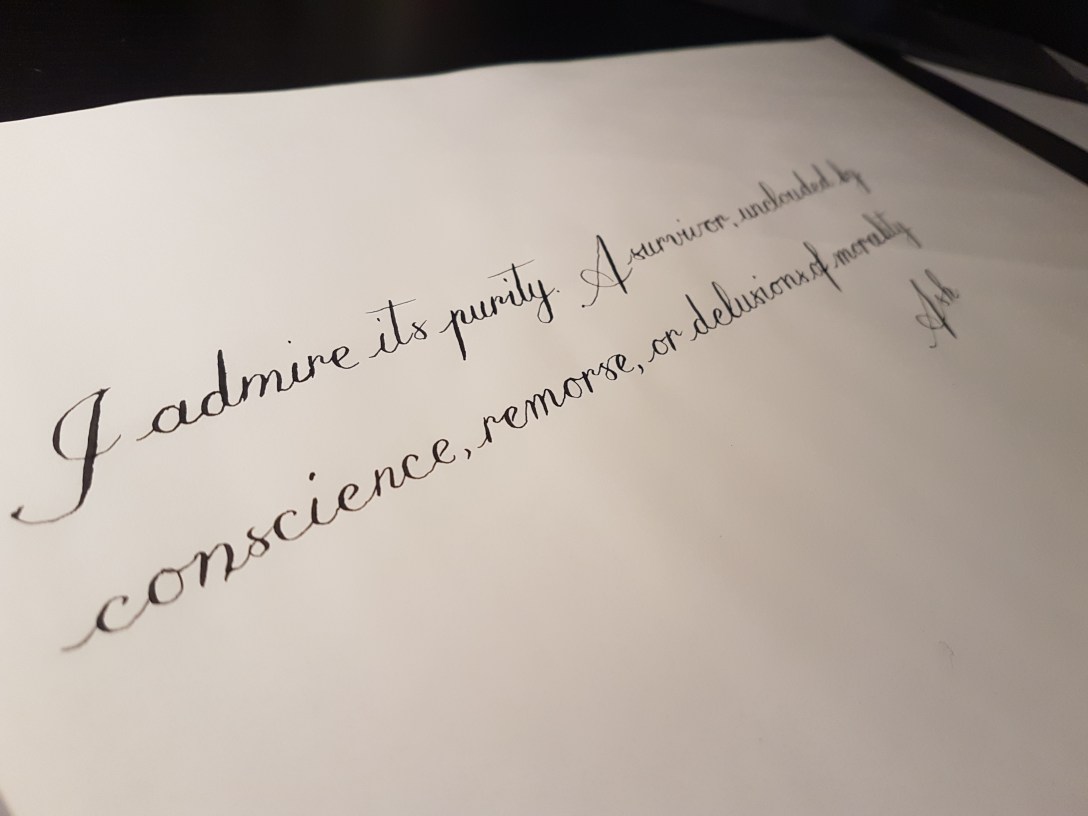 I admire its purity. A survivor, unclouded by
conscience, remorse, or delusions of morality
Ash